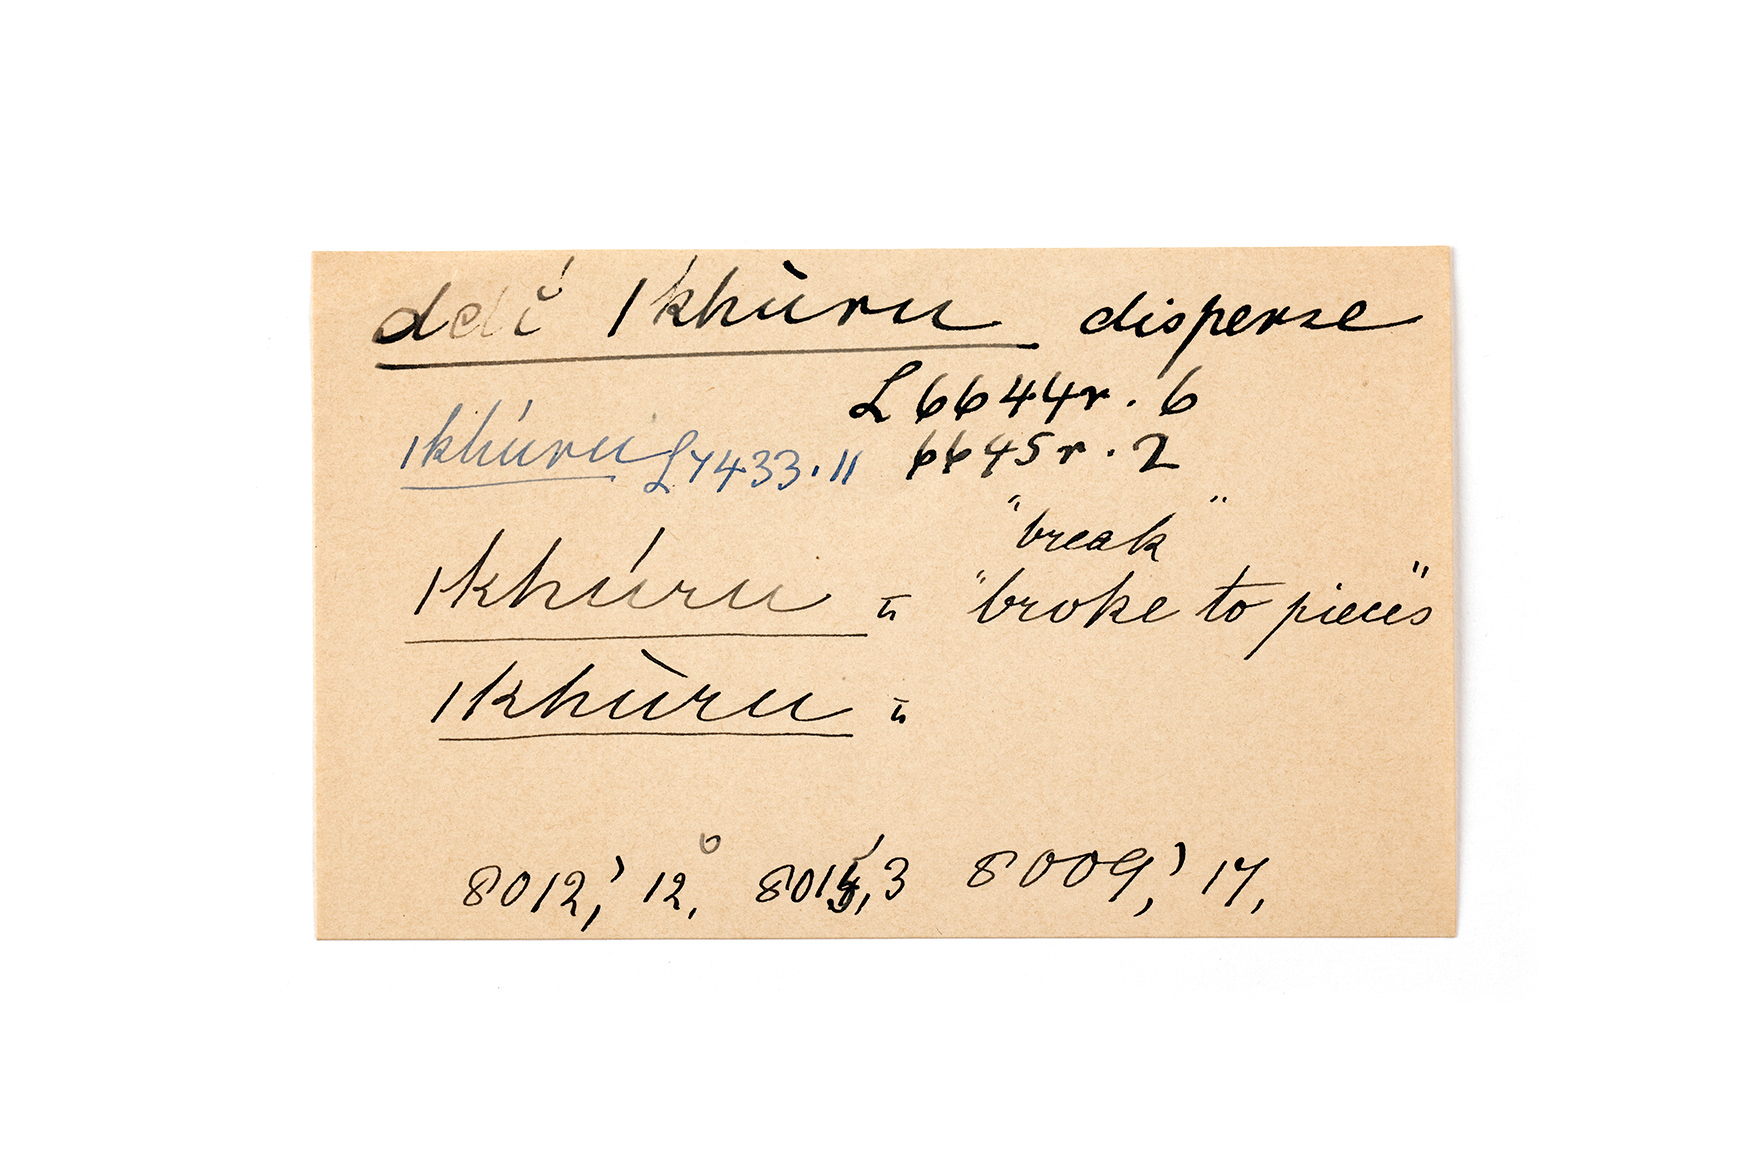 ddĭ́ ǀkhùru disperse
L 6644r. 6
ǀkhúru L7433.11 6645r. 2
"break"
ǀkhúru = "broke to pieces"
ǀkhùru =
8012,' 12, 8015,' 3 8009,' 17,